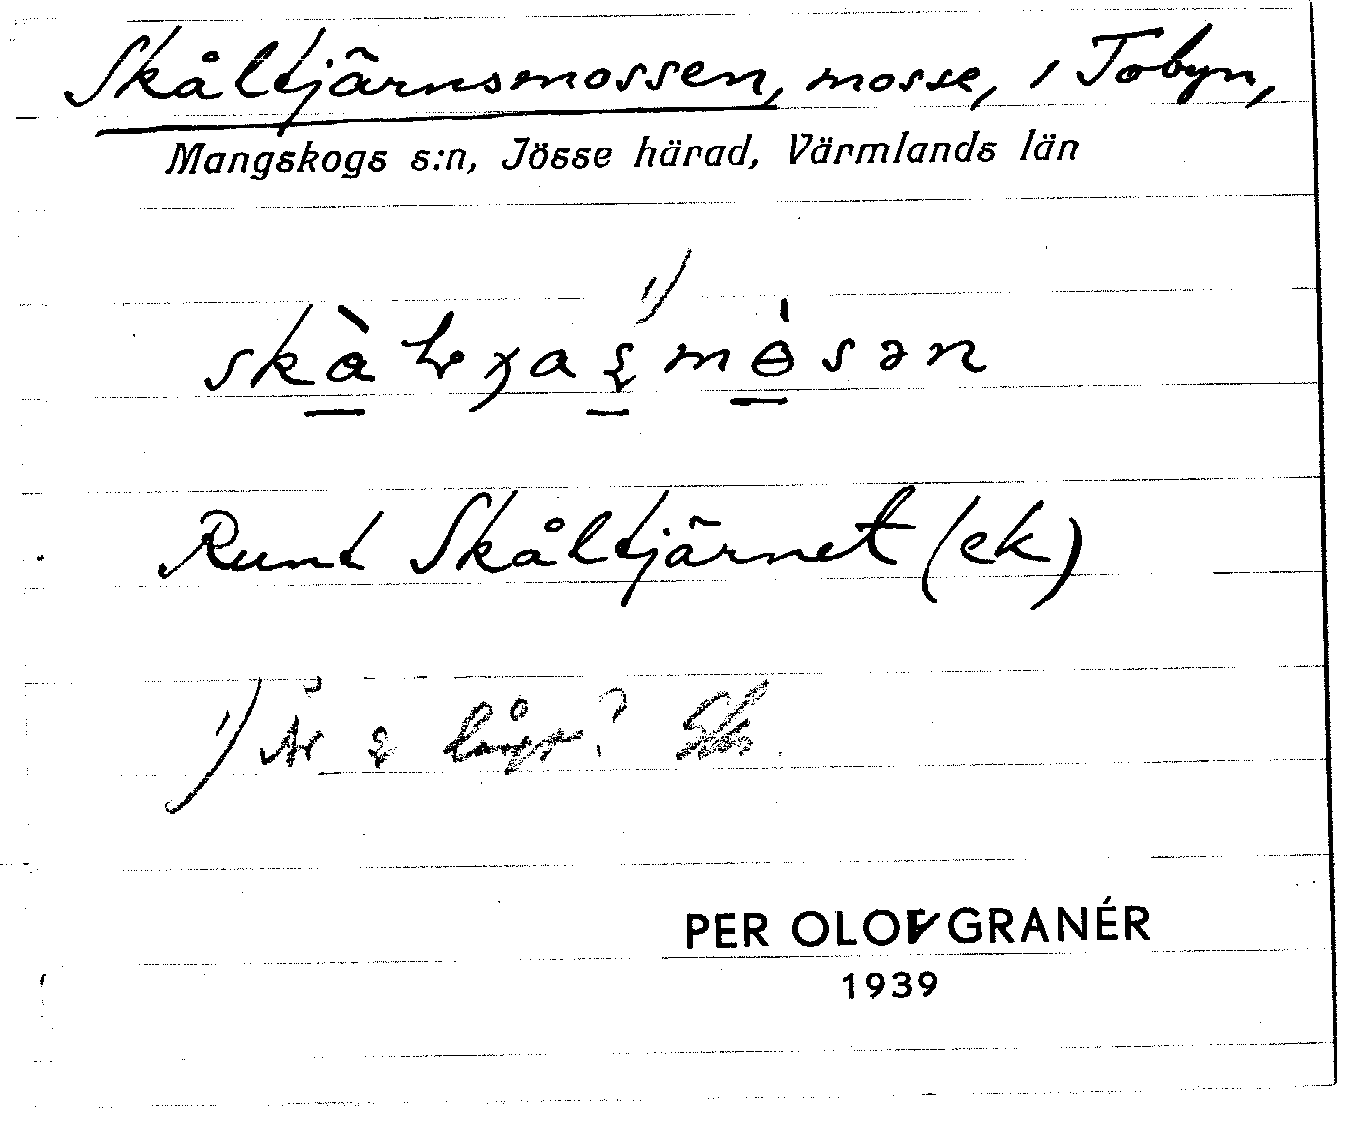 Skåltjärnsmossen, mosse, i Tobyn,
Mangskogs s:n, Jösse härad, Värmlands län
1)
Runt Skåltjärnet (ek)
1) Är långt?
PER OLOV GRANÉR
1939